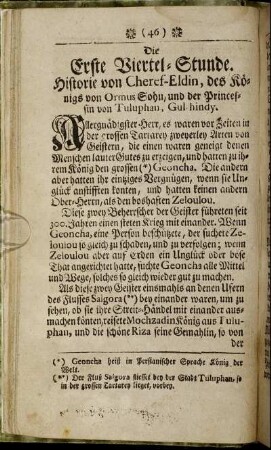 (46)
Die
Erste Viertel-Stunde.
Historie von Cheref-Eldin, des Kö-
nigs von Ormus Sohn, und der Princes-
sin von Tuluphan, Gul-hindy.
Allergnädigster Herr, es waren vor Zeiten in
der grossen Tartarey zweyerley Arten von
Geistern, die einen waren geneigt denen
Menschen lauter Gutes zu erzeigen, und hatten zu ih-
rem König den grossen (*) Geoncha. Die andern
aber hatten ihr einziges Vergnügen, wenn sie Un-
glück anstifften konten, und hatten keinen andern
Ober-Herrn, als den boshaften Zeloulou.
Diese zwey Beherrscher der Geister führeten seit
300. Jahren einen steten Krieg mit einander. Wenn
Geoncha, eine Person beschützete, der suchete Ze-
loulou so gleich zu schaden, und zu verfolgen; wenn
Zeloulou aber auf Erden ein Unglück oder böse
That angerichtet hatte, suchte Geoncha alle Mittel
und Wege, solches so gleich wieder gut zu machen.
Als diese zwey Geister einsmahls an denen Ufern
des Flusses Saigora (**) bey einander waren, um zu
sehen, ob sie ihre Streit-Händel mit einander aus-
machen könten, reisete Mochzadin König aus Tulu-
phan, und die schöne Riza seine Gemahlin, so von
der
(*) Geoncha heist in Persianischer Sprache König der
Welt.
(**) Der Fluß Saigora fliesset bey der Stadt Tuluphan, so
in der grossen Tartarey lieget, vorbey.